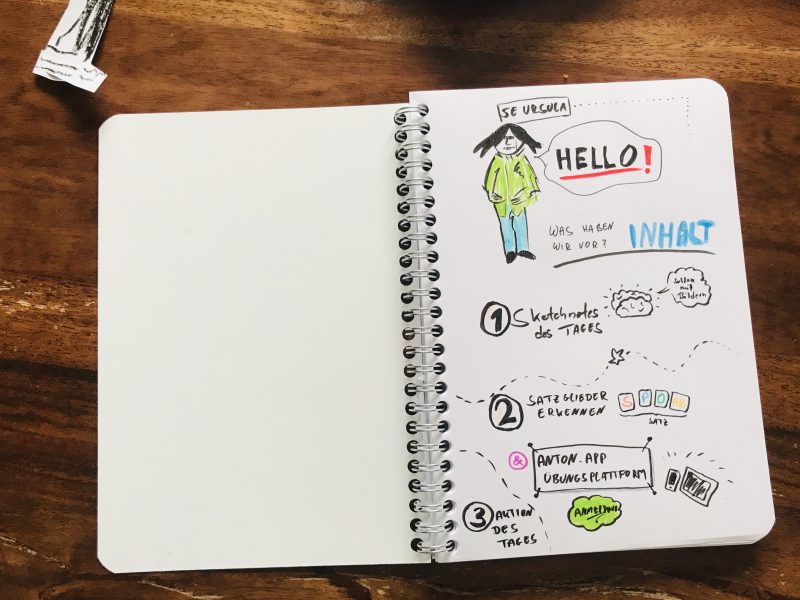 SE URSULA
HELLO!
WAS HABEN
WIR VOR?
INHALT
1 Sketchnotes
des TAGES
mit
Bildern
2 SATZGLIEDER
ERKENNEN
S P O
SATZ
& ANTON.APP
ÜBUNGSPLATTFORM
3 AKTION
DES
TAGES